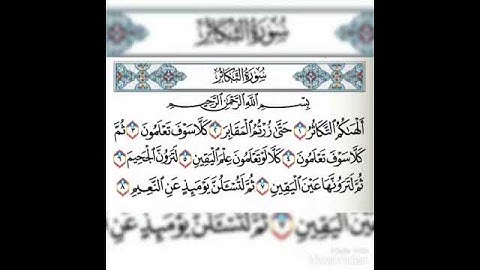 سُورَةُ التَّكَاثُرِ
سُورَةُ التَّكَاثُرِ
بِسْمِ اللَّهِ الرَّحْمَٰنِ الرَّحِيمِ
أَلْهَاكُمُ التَّكَاثُرُ ١ حَتَّىٰ زُرْتُمُ الْمَقَابِرَ ٢ كَلَّا سَوْفَ تَعْلَمُونَ ٣ ثُمَّ
كَلَّا سَوْفَ تَعْلَمُونَ ٤ كَلَّا لَوْ تَعْلَمُونَ عِلْمَ الْيَقِينِ ٥ لَتَرَوُنَّ الْجَحِيمَ ٦
ثُمَّ لَتَرَوُنَّهَا عَيْنَ الْيَقِينِ ٧ ثُمَّ لَتُسْأَلُنَّ يَوْمَئِذٍ عَنِ النَّعِيمِ ٨
عَيْنَ الْيَقِينِ ٧ ثُمَّ لَتُسْأَلُنَّ يَوْمَئِذٍ عَنِ